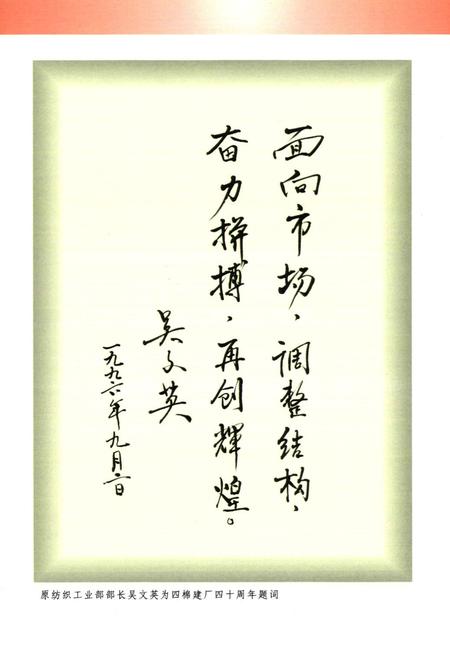 面向市场，调整结构，
奋力拼搏，再创辉煌。
吴文英
一九九六年九月二日
原纺织工业部部长吴文英为四棉建厂四十周年题词